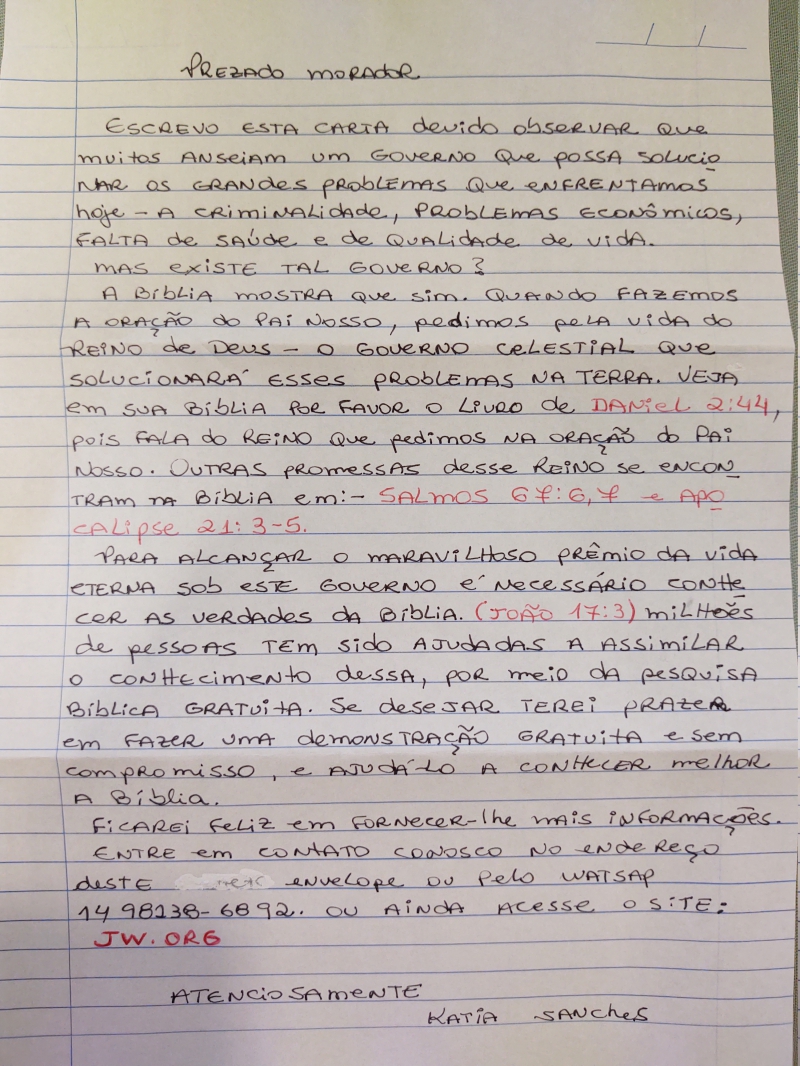 PREZADO MORADOR
ESCREVO ESTA CARTA devido observar que
muitos ANSEIAM UM GOVERNO QUE POSSA SOLUCIO
NAR OS GRANDES PROBLEMAS QUE ENFRENTAMOS
hoje - A CRIMINALIDADE, PROBLEMAS ECONÔMICOS,
FALTA de SAÚDE e de QUALIDADE de vida.
MAS EXISTE TAL GOVERNO?
A BÍBLIA MOSTRA QUE SIM. QUANDO FAZEMOS
A ORAÇÃO do PAI NOSSO, pedimos pela vida do
REINO de DEUS - O GOVERNO CELESTIAL QUE
SOLUCIONARÁ ESSES PROBLEMAS NA TERRA. VEJA
em SUA BÍBLIA POR FAVOR O LIVRO de DANIEL 2:44,
pois FALA do REINO QUE pedimos NA ORAÇÃO do PAI
NOSSO. OUTRAS PROMESSAS desse REINO se ENCON
TRAM NA BÍBLIA em:- SALMOS 67:6,7 e APO
CALIPSE 21:3-5.
PARA ALCANÇAR O MARAVILHOSO PRÊMIO DA VIDA
ETERNA SOB ESTE GOVERNO É NECESSÁRIO CONHE
CER AS VERDADES DA BÍBLIA. (JOÃO 17:3) MILHÕES
de pessoas TEM sido AJUDADAS A ASSIMILAR
O CONHECIMENTO dessa, por meio da pesquisa
BÍBLICA GRATUITA. Se desejar TEREI PRAZER
em FAZER UMA demonstração GRATUITA e sem
compromisso, e AJUDÁ-LO A CONHECER melhor
A BÍBLIA.
FICAREI FELIZ em FORNECER-lhe mais INFORMAÇÕES.
ENTRE em CONTATO CONOSCO NO endereço
deste envelope ou pelo WATSAP
14 98138-6892. OU AINDA ACESSE O SITE:
JW.ORG
ATENCIOSAMENTE
KATIA SANCHES